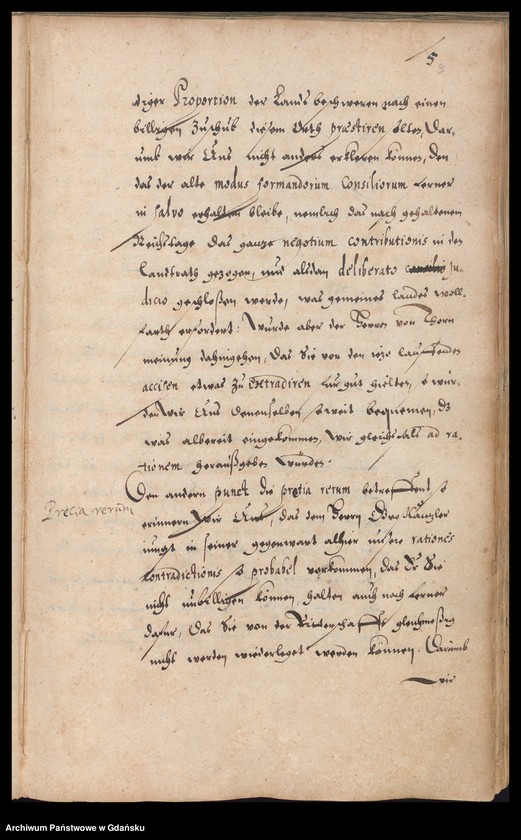 5
diger Proportion der Lands beschweren nach einen
billigen Zuschub diesem Orth præstiren solte, Dar-
umb wir Uns nicht anders erkleren können, den
das der alte modus formandorum Consiliorum ferner
in salvo erhalten bleibe, nemlich das nach gehaltenem
Reichstage das ganze negotium contributionis in den
Landtrath gezogen, und alsdan deliberato Ju-
dicio geschloßen werde, was gemeines landes woll-
farth erfordert: Wurde aber der Herren von Thorn
meinung dahingehen, das Sie von den iezo lauffenden
accisen etwas zu extradiren fur gut hielten, so wür-
den wir Uns denenselben so weit bequemen, dz
was albereit eingekommen, wir gleichfals ad ra-
tionem heraußgeben würden.
Den andern punct die pretia rerum betreffent so
Precia rerum
erinnern wir Uns, das dem Herrn
iungst in seiner gegenwart alhier unsere rationes
contradictionis so probabel vorkommen, das Sie
nicht unbilligen können, halten auch noch ferner
dafur, das Sie von der Ritterschafft gleichmeßig
nicht werden wiederleget werden können. Darumb
wir
Archiwum Państwowe w Gdańsku